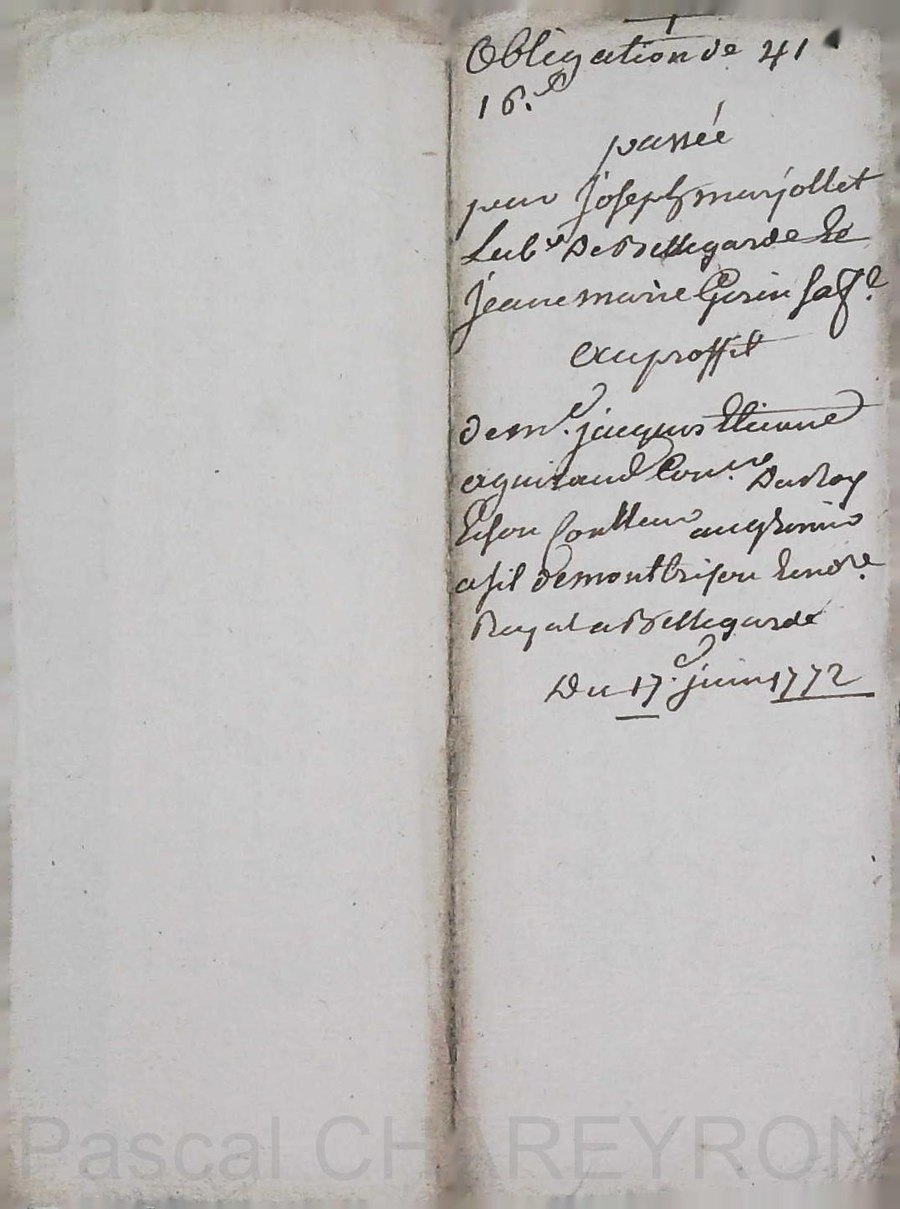 Obligation de 41
16.s
passée
par Joseph marjollet
Lab.r De Bellegarde Et
Jeanemarie Gerin sa f.e
au proffit
de m.e jacques Etienne
aguiraud Con.er Du Roy
Et son Con.lleur au grenier
a sel de montbrison Et no.re
Royal a Bellegarde
Du 17.e juin 1772
Pascal CHAREYRON